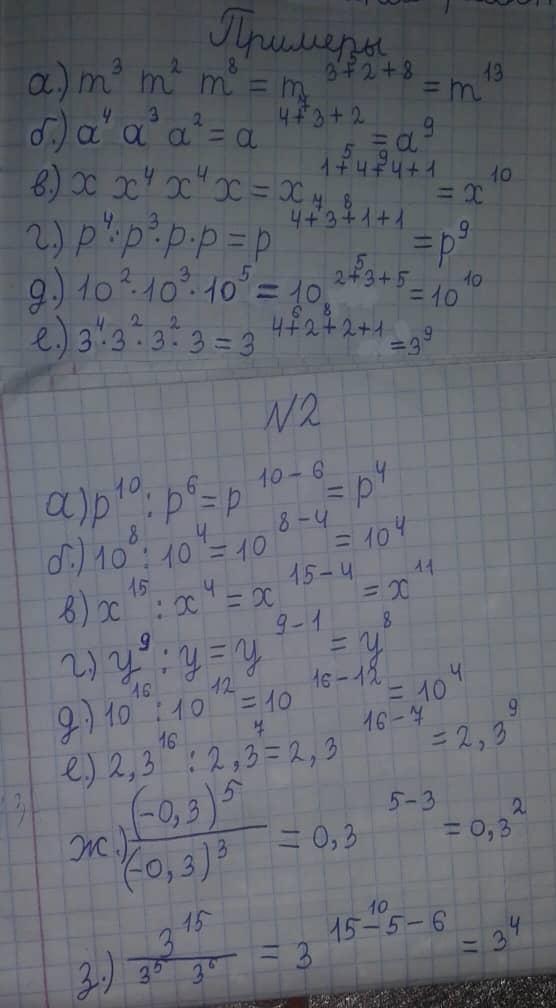 Примеры
а.) m³ m² m⁸ = m³⁺²⁺⁸ = m¹³
5
б.) a⁴ a³ a² = a⁴⁺³⁺² = a⁹
7
в.) x x⁴ x⁴ x = x¹⁺⁴⁺⁴⁺¹ = x¹⁰
5 9
г.) p⁴·p³·p·p = p⁴⁺³⁺¹⁺¹ = p⁹
7 8
д.) 10²·10³·10⁵ = 10²⁺³⁺⁵ = 10¹⁰
5
е.) 3⁴·3²·3²·3 = 3⁴⁺²⁺²⁺¹ = 3⁹
6 8
N2
а) p¹⁰ : p⁶ = p¹⁰⁻⁶ = p⁴
б.) 10⁸ : 10⁴ = 10⁸⁻⁴ = 10⁴
в) x¹⁵ : x⁴ = x¹⁵⁻⁴ = x¹¹
г.) y⁹ : y = y⁹⁻¹ = y⁸
д.) 10¹⁶ : 10¹² = 10¹⁶⁻¹² = 10⁴
е.) 2,3¹⁶ : 2,3⁷ = 2,3¹⁶⁻⁷ = 2,3⁹
ж.) (-0,3)⁵ / (-0,3)³ = 0,3⁵⁻³ = 0,3²
з.) 3¹⁵ / 3⁵ 3⁶ = 3¹⁵⁻⁵⁻⁶ = 3⁴
10